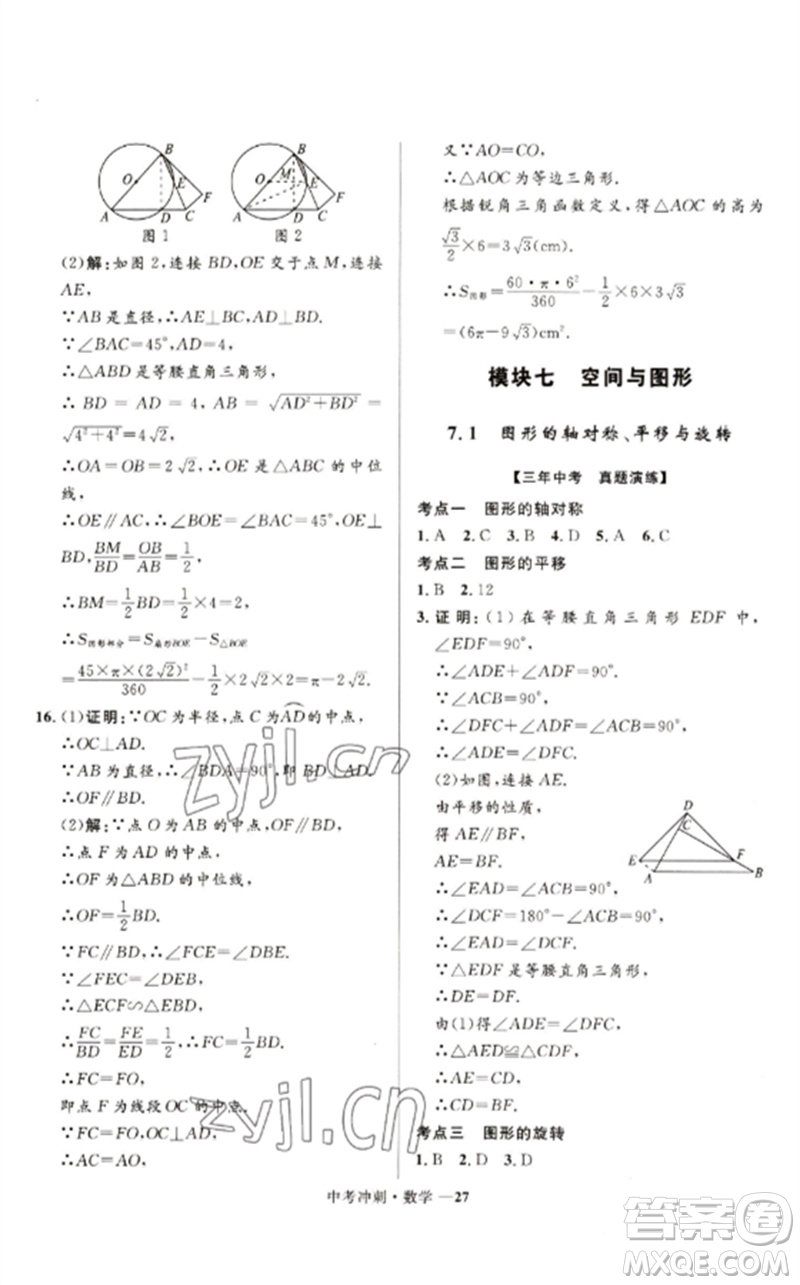 B
O
E
F
A
D
C
图1
B
O
M
E
F
A
D
C
图2
(2)解:如图2,连接BD,OE交于点M,连接
AE,
∵AB是直径,∴AE⊥BC,AD⊥BD.
∵∠BAC=45°,AD=4,
∴△ABD是等腰直角三角形,
∴BD=AD=4,AB=√(AD²+BD²)=
√(4²+4²)=4√2,
∴OA=OB=2√2,OE是△ABC的中位
线,
∴OE∥AC,∴∠BOE=∠BAC=45°,OE⊥
BD,BM/BD=OB/AB=1/2
∴BM=1/2BD=1/2×4=2,
∴S图形部分=S扇形BOE-S△BOE
=45×π×(2√2)²/360-1/2×2√2×2=π-2√2.
16.(1)证明:∵OC为半径,点C为AD的中点,
∴OC⊥AD.
∵AB为直径,∴∠BDA=90°,即BD⊥AD.
∴OF∥BD.
(2)解:∵点O为AB的中点,OF∥BD,
∴点F为AD的中点,
∴OF为△ABD的中位线,
∴OF=1/2BD.
∵FC∥BD,∴∠FCE=∠DBE.
∵∠FEC=∠DEB,
∴△ECF∽△EBD,
∴FC/BD=FE/ED=1/2,∴FC=1/2BD,
∴FC=FO,
即点F为线段OC的中点.
∵FC=FO,OC⊥AD,
∴AC=AO,
又∵AO=CO,
∴△AOC为等边三角形.
根据锐角三角函数定义,得△AOC的高为
√3/2×6=3√3(cm).
∴S图形=60·π·6²/360-1/2×6×3√3
=(6π-9√3)cm².
模块七 空间与图形
7.1 图形的轴对称、平移与旋转
【三年中考 真题演练】
考点一 图形的轴对称
1.A 2.C 3.B 4.D 5.A 6.C
考点二 图形的平移
1.B 2.12
3.证明:(1)在等腰直角三角形EDF中,
∠EDF=90°,
∴∠ADE+∠ADF=90°.
∵∠ACB=90°,
∴∠DFC+∠ADF=90°,
∴∠ADE=∠DFC.
(2)如图,连接AE.
由平移的性质,
得AE∥BF,
AE=BF.
D
C
E
F
A
B
∴∠EAD=∠ACB=90°,
∴∠DCF=180°-∠ACB=90°,
∴∠EAD=∠DCF.
∵△EDF是等腰直角三角形,
∴DE=DF.
由(1)得∠ADE=∠DFC,
∴△AED≌△CDF,
∴AE=CD,
∴CD=BF.
考点三 图形的旋转
1.B 2.D 3.D
中考冲刺·数学—27
zyjl.cn
zyjl.cn
答案圈
MXQE.COM